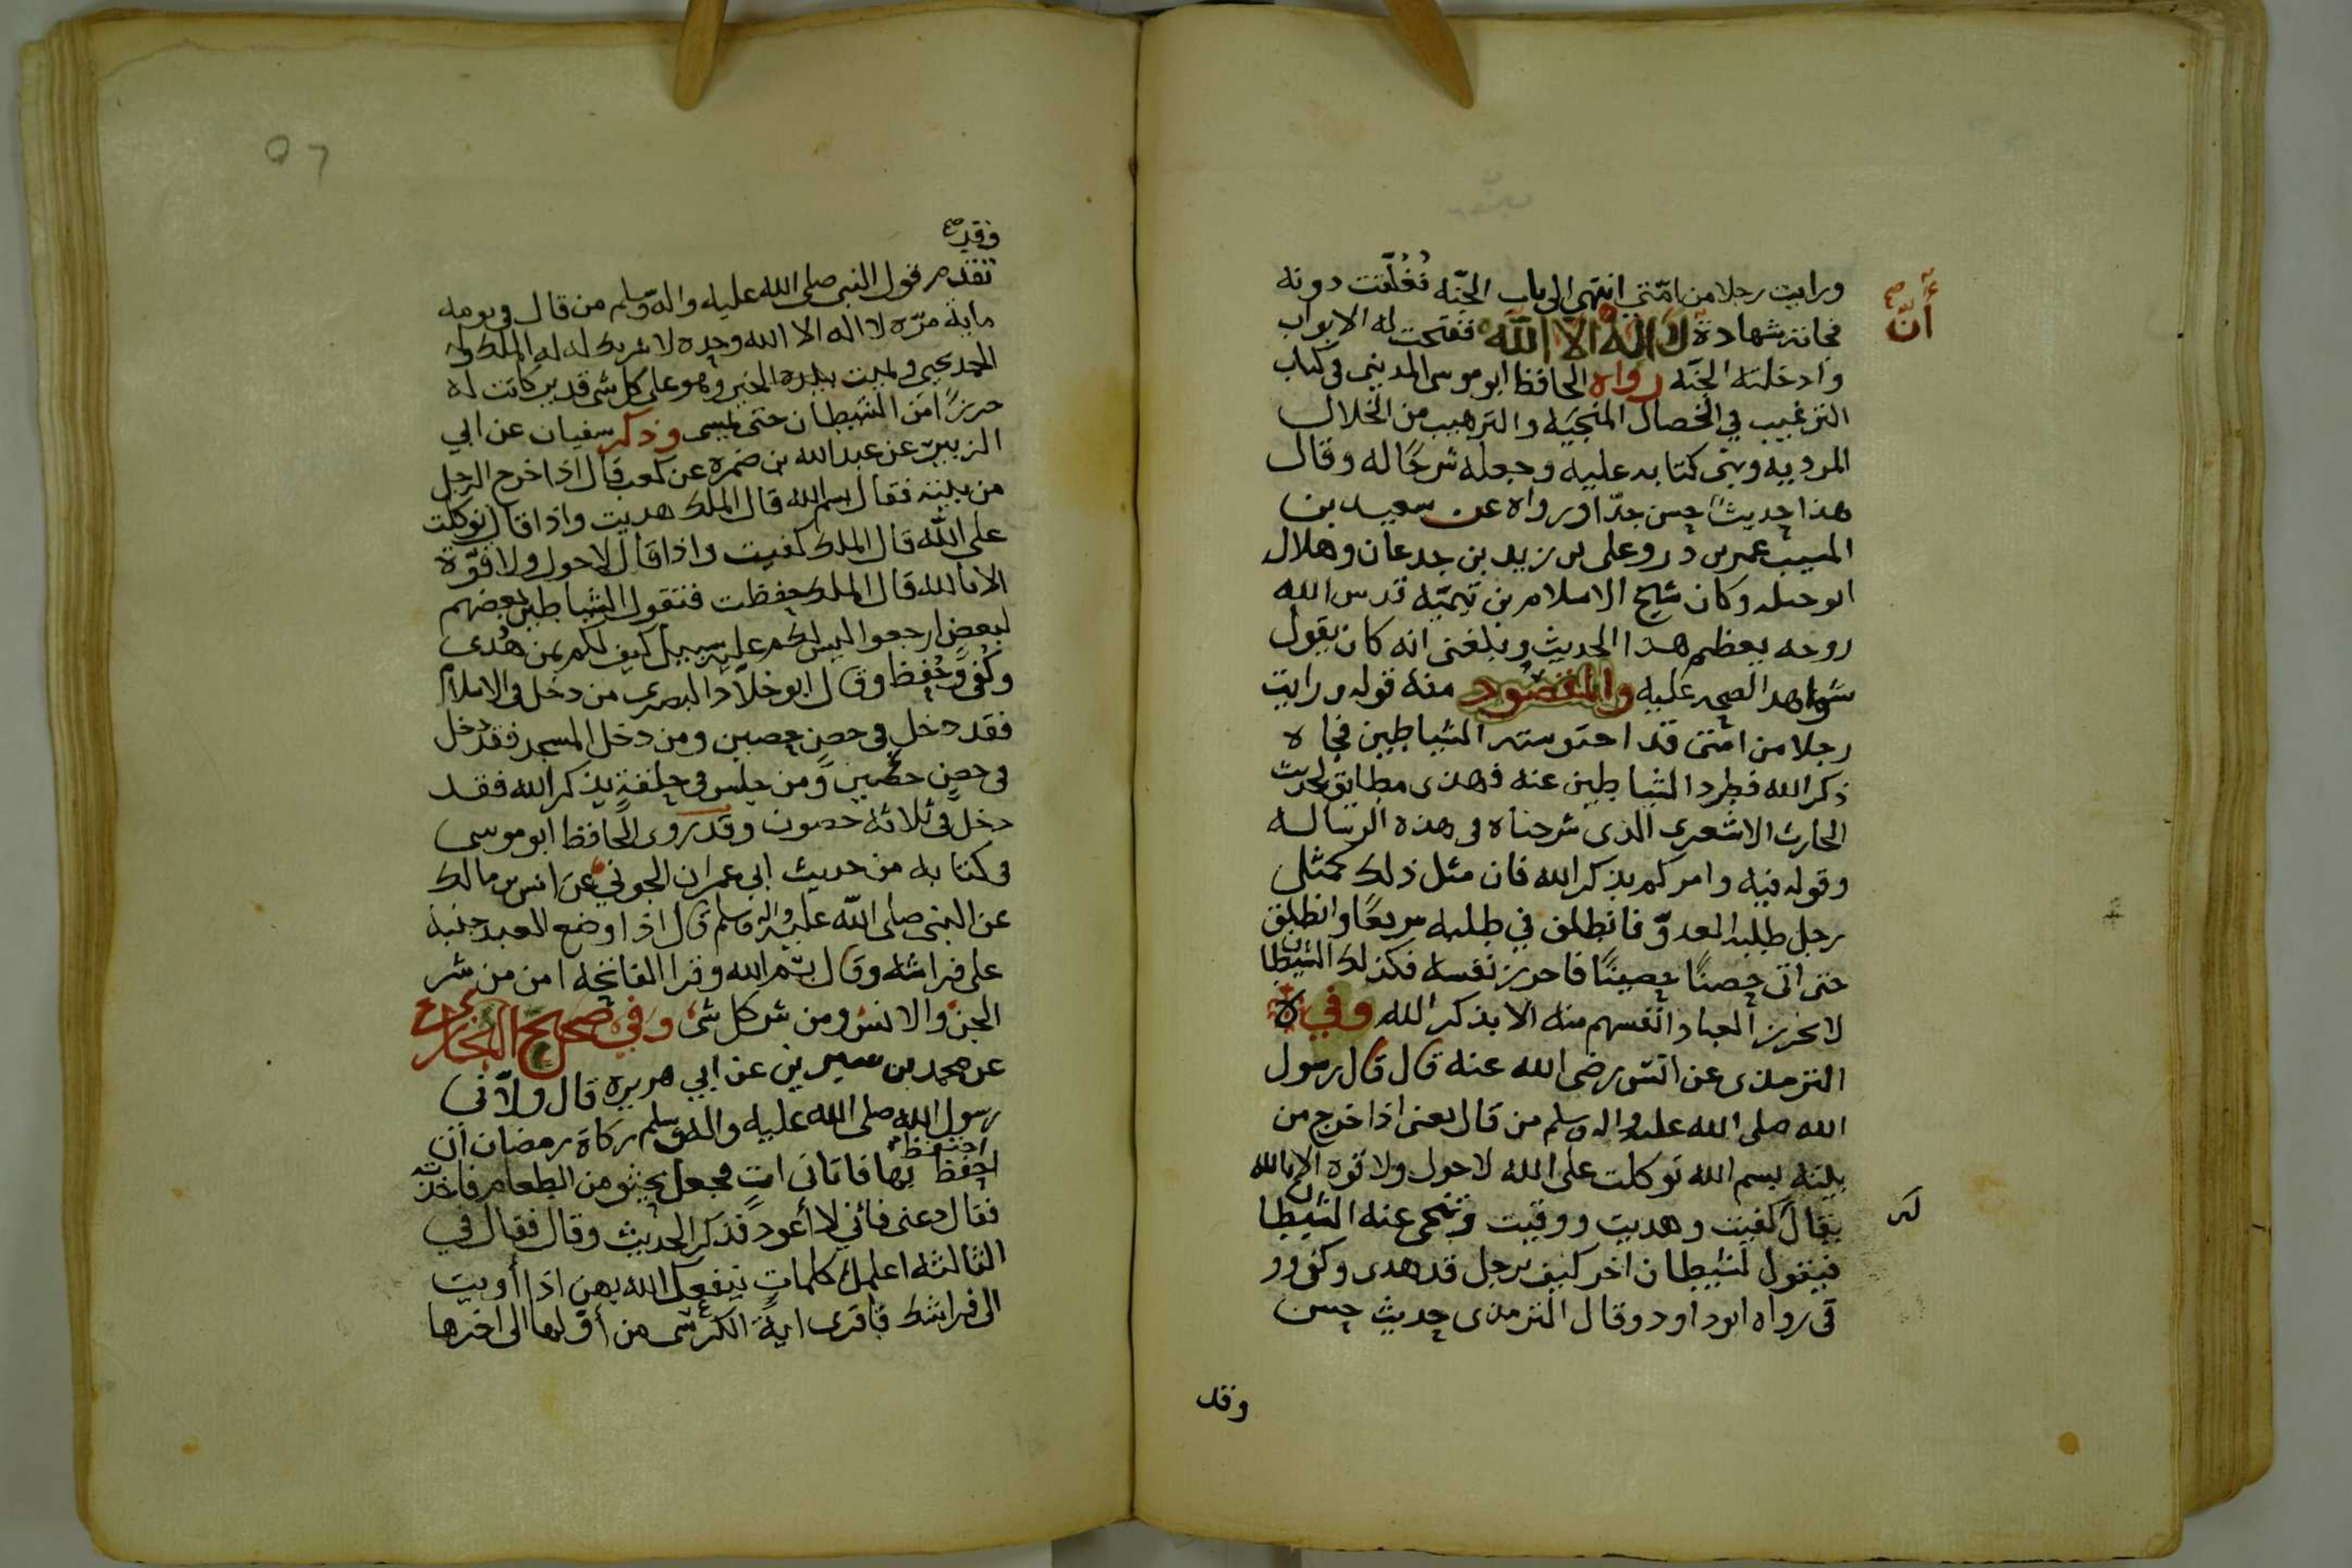 ورايت رجلا من امّتي انتهى الى باب الجنّه فغُلّقت دونه
أنّ صح
فجاته شهادة لا اله الا الله ففتحت له الابواب
وادخلته الجنّه رواه الحافظ ابو موسى المديني في كتاب
الترغيب في الخصال المنجيه والترهيب من الخلال
المرديه وبنى كتابه عليه وجعله شرحًا له وقال
هذا حديث حسن جدّا ورواه عن سعيد بن
المسيب عمر بن ذر وعلى بن زيد بن جدعان وهلال
ابو جبله وكان شيخ الاسلام بن تيميّه قدس الله
روحه يعظم هذا الحديث وبلغنى انه كان يقول
شواهد الصحه عليه والمقصود منه قوله ورايت
رجلا من امتى قد احتوشته الشياطين فجاه
ذكر الله فطرد الشياطين عنه فهذى مطابق لحديث
الحارث الاشعرى الذى شرحناه فى هذه الرساله
وقوله فيه وامركم بذكر الله فان مثل ذلك كمثل
رجل طلبه العدوّ فانطلق في طلبه سريعًا وانطلق
حتى اتى حصنًا حصينًا فاحرز نفسه فكذلك الشيطان
لا يحرز العباد انفسهم منه الا بذكر الله وفي
الترمذى عن انس رضى الله عنه قال قال رسول
الله صلى الله عليه واله وسلم من قال يعنى اذا خرج من
بيته بسم الله توكلت على الله لا حول ولا قوه الا بالله
يقال كفيت وهديت ووقيت وتنحى عنه الشيطان
لك
فيقول لشيطان اخر كيف برجل قد هدى وكفى وو
قى رواه ابو داود وقال الترمذى حديث حسن
وقد
٥٦
وقد صح
تقدم قول النبى صلى الله عليه واله وسلم من قال فى يومه
مايه مرّه لا اله الا الله وحده لا شريك له له الملك وله
الحمد يحيى ويميت بيده الخير وهو على كل شى قدير كانت له
حرزًا من الشيطان حتى يمسى وذكر سفيان عن ابي
الزبير عن عبد الله بن ضمره عن كعب قال اذا خرج الرجل
من بيته فقال بسم الله قال الملك هديت واذا قال توكلت
على الله قال الملك كفيت واذا قال لا حول ولا قوّة
الا بالله قال الملك حفظت فتقول الشياطين بعضهم
لبعضٍ ارجعوا ليس لكم عليه سبيل كيف لكم بمن هُدى
وكُفى وحُفظ وقال ابو خلاد البصرى من دخل فى الاسلام
فقد دخل فى حصنٍ حصين ومن دخل المسجد فقد دخل
فى حصنٍ حصين ومن جلس فى حلقةٍ يذكر الله فقد
دخل فى ثلاثه حصون وقد روى الحافظ ابو موسى
فى كتابه من حديث ابى عمران الجوني عن انس بن مالك
عن النبى صلى الله عليه واله وسلم قال اذا وضع العبد جنبه
على فراشه وقال بسم الله وقرا الفاتحه امن من شر
الجن والانس ومن شر كل شى وفي صحيح البخاري
عن محمد بن سيرين عن ابي هريره قال ولاّنى
رسول الله صلى الله عليه واله وسلم زكاة رمضان ان
احتفظ
احفظ بها فاتانى اتٍ فجعل يحثو من الطعام فاخذته
فقال دعنى فانّي لا أعود فذكر الحديث وقال فقال في
الثالثه اعلمك كلماتٍ ينفعك الله بهن اذا أويت
الى فراشك فاقرى ايةَ الكرسى من أوّلها الى اخرها